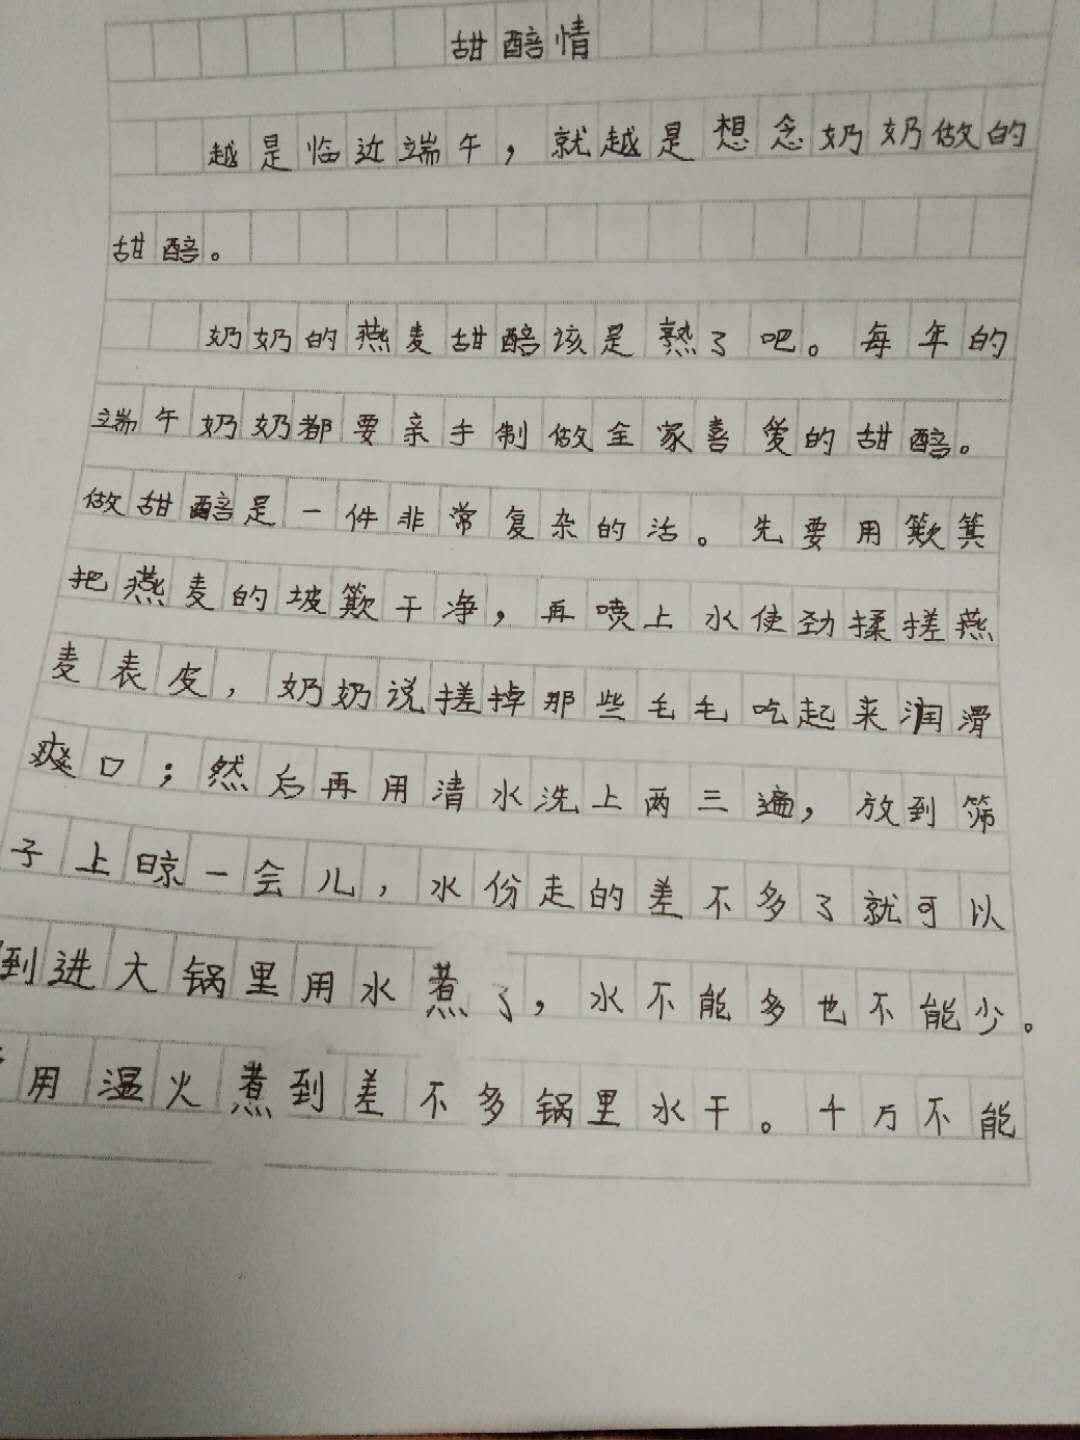 甜醅情
越是临近端午，就越是想念奶奶做的
甜醅。
奶奶的燕麦甜醅该是熟了吧。每年的
端午奶奶都要亲手制做全家喜爱的甜醅。
做甜醅是一件非常复杂的活。先要用簸箕
把燕麦的坡簸干净，再喷上水使劲揉搓燕
麦表皮，奶奶说搓掉那些毛毛吃起来润滑
爽口；然后再用清水洗上两三遍，放到筛
子上晾一会儿，水份走的差不多了就可以
到进大锅里用水煮了，水不能多也不能少。
用温火煮到差不多锅里水干。千万不能